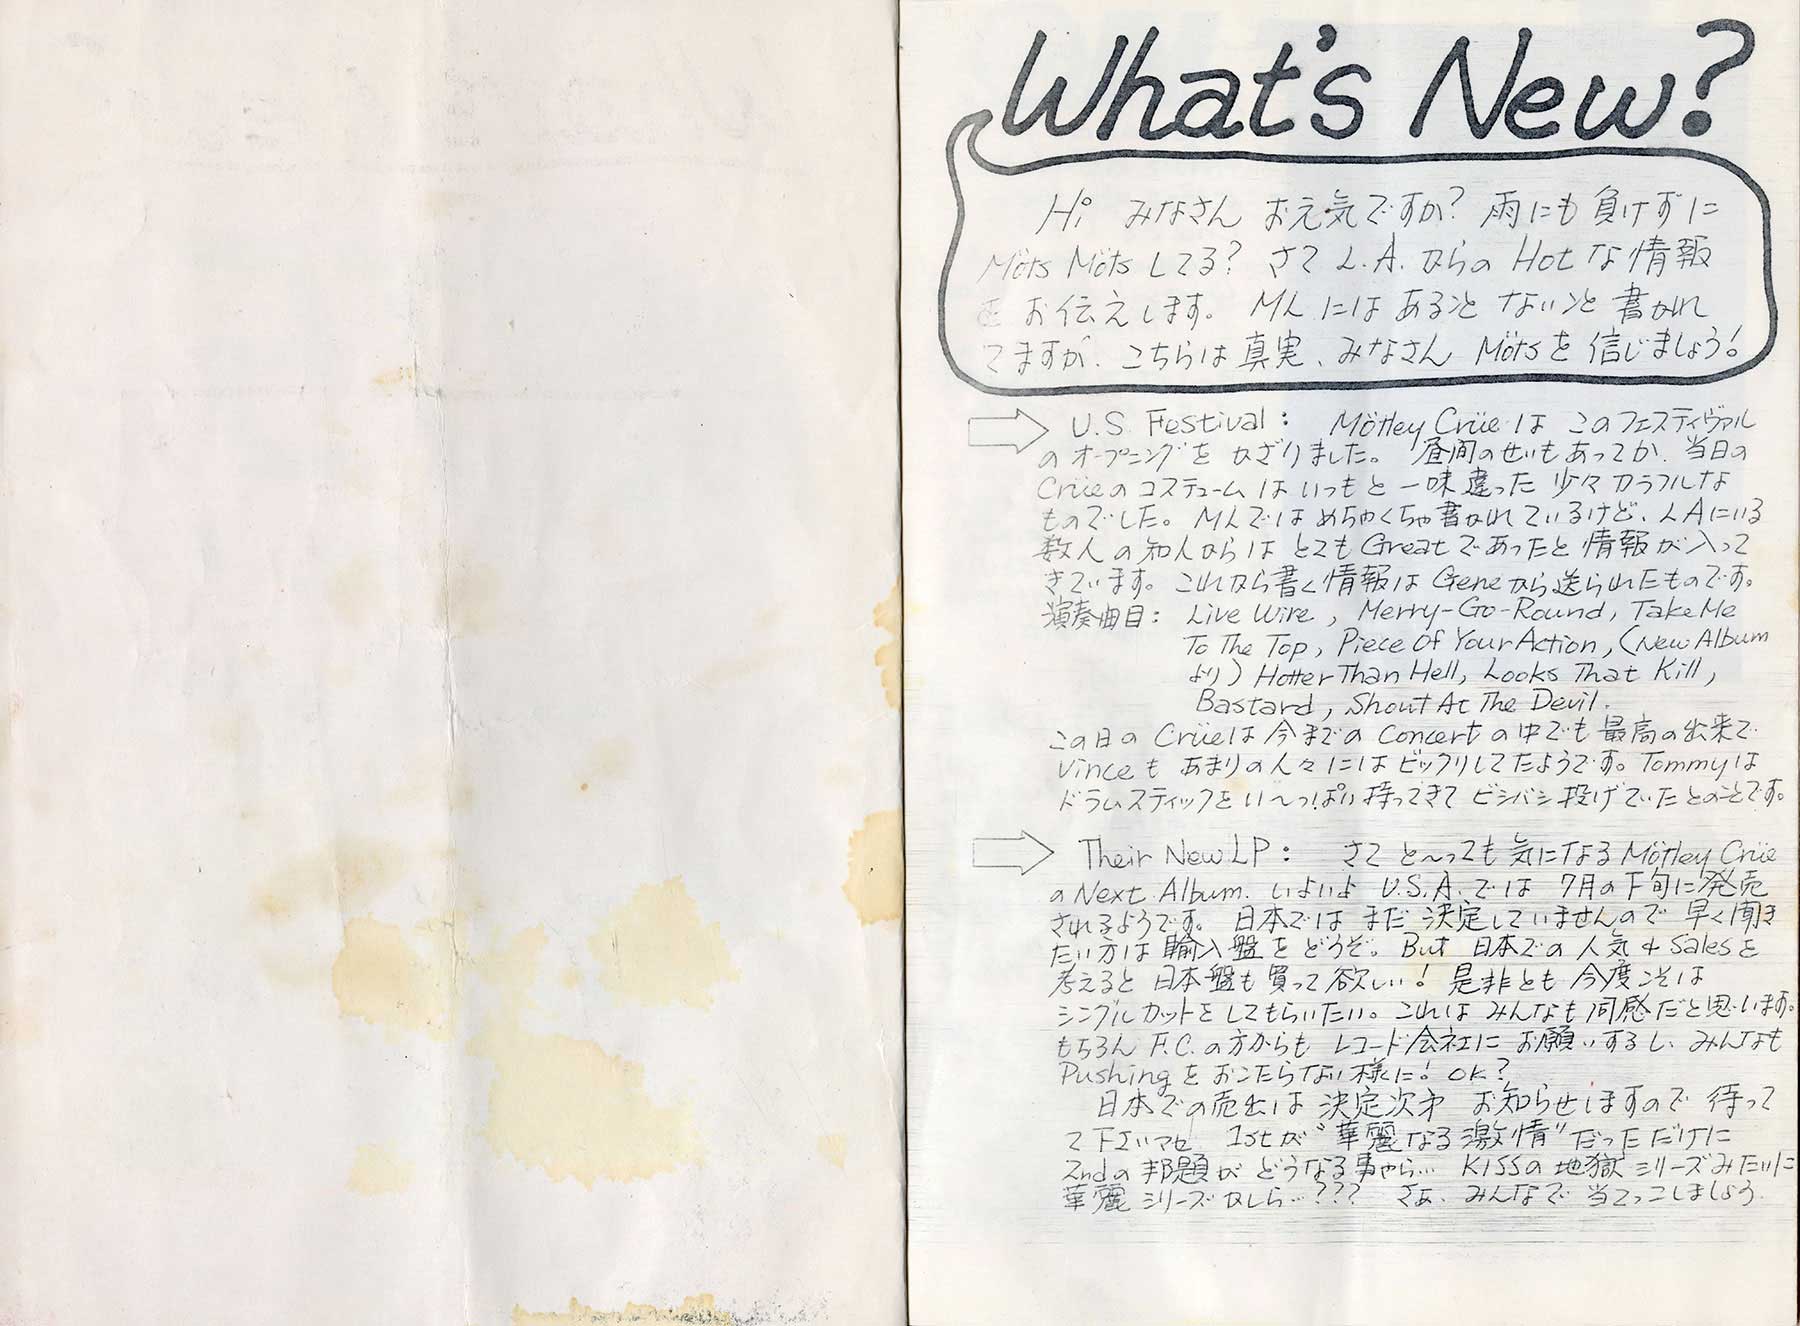 What's New?
Hi みなさん お元気ですか? 雨にも負けずに
Möts Möts してる? さて L.A. からの Hot な情報
を お伝えします。 MLには あること ないこと 書かれ
てますが、こちらは真実、みなさん Mötsを信じましょう!
U.S. Festival: Mötley Crüeは このフェスティヴァル
のオープニングを かざりました。 昼間のせいもあってか、当日の
Crüeのコスチュームは いつもと一味違った 少々カラフルな
ものでした。 MLではめちゃくちゃ書かれているけど、LAにいる
数人の知人からは とてもGreatであったと 情報が入って
きています。これから書く情報は Geneから送られたものです。
演奏曲目: Live Wire, Merry-Go-Round, Take Me
To The Top, Piece Of Your Action, (New Album
より) Hotter Than Hell, Looks That Kill,
Bastard, Shout At The Devil.
この日の Crüeは今までの Concertの中でも最高の出来で
Vinceも あまりの人々にはビックリしてたようです。Tommyは
ドラムスティックをい〜っぱい持ってきて ビシバシ投げていたとのことです。
Their New LP: さて と〜っても気になる Mötley Crüe
のNext Album. いよいよ U.S.A.では 7月の下旬に発売
されるようです。 日本では まだ 決定していませんので 早く聞き
たい方は輸入盤をどうぞ。But 日本での人気+Salesを
考えると日本盤も買って欲しい! 是非とも今度こそは
シングルカットをしてもらいたい。これはみんなも同感だと思います。
もちろん F.C.の方からも レコード会社に お願いするし、みんなも
Pushingを おこたらない様に! OK?
日本での売出は決定次才 お知らせしますので 待って
て下エいマセ 1stが"華麗なる激情"だっただけに
2ndの邦題が どうなる事やら… KISSの地獄シリーズみたいに
華麗シリーズかしら…??? さぁ、みんなで当てっこしましょう